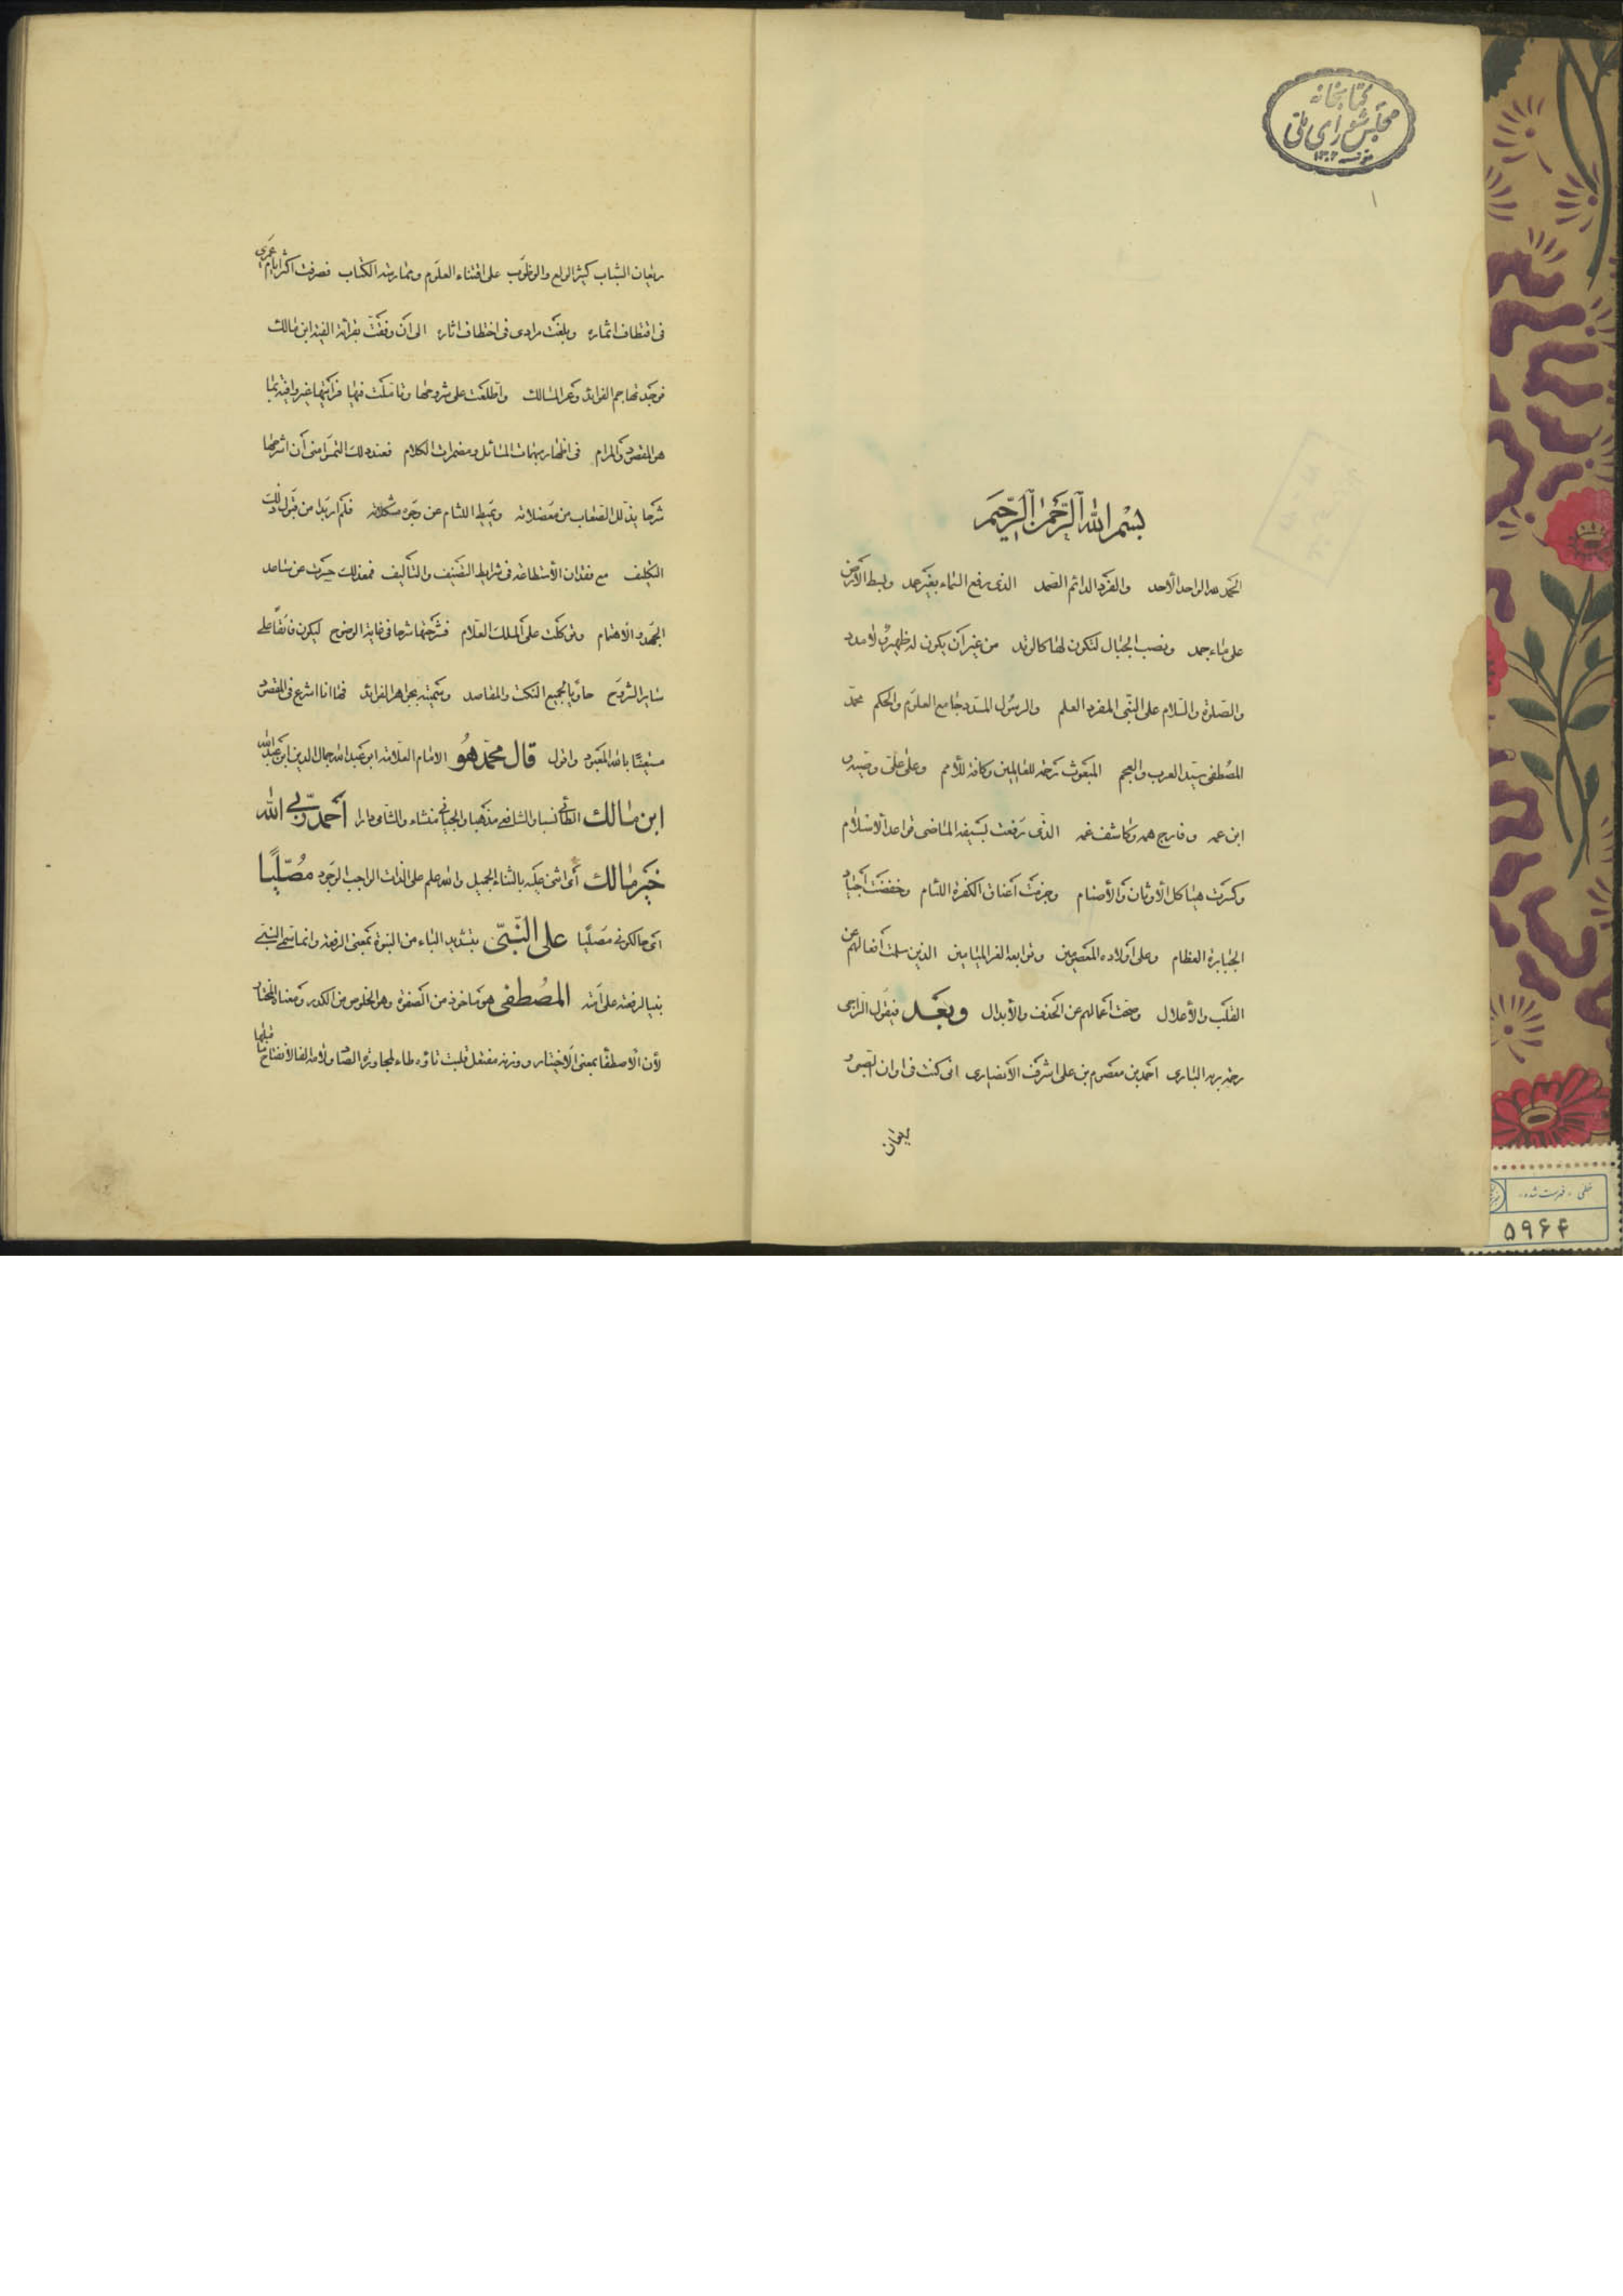 كتابخانه
مجلس شورای ملی
مؤسسه ۱۳۰۲
۱
بسم الله الرحمن الرحيم
الحمد لله الواحد الأحد والفرد الدائم الصمد الذى رفع السماء بغير عمد وبسط الأرض
على ماء جمد ونصب الجبال لتكون لها كالوتد من غير أن يكون له ظهير ولا مدد
والصلوة والسلام على النبى المفرد العلم والرسول المسدد جامع العلوم والحكم محمد
المصطفى سيد العرب والعجم المبعوث رحمة للعالمين وكافة للأمم وعلى على وصيه و
ابن عمه وفارج همه وكاشف غمه الذى رفعت بسيفه الماضى قواعد الاسلام
وكسرت هياكل الأوثان والأصنام وجزمت أعناق الكفرة اللئام وخفضت أجياد
الجبابرة العظام وعلى أولاده المعصومين وتوابعه الغر الميامين الذين سلمت أفعالهم عن
القلب والأعلال وصحت أعمالهم عن الحذف والأبدال وبعد فيقول الراجى
رحمة ربه البارى احمد بن معصوم بن على اشرف الأنصارى انى كنت فى اوان الصبى و
ريعان
ريعان الشباب كثير الولع والوظوب على اقتناء العلوم وممارسة الكتاب فصرفت اكثر ايام عمرى
فى اقتطاف اثماره وبلغت مرادى فى اختطاف اثاره الى ان وفقت بقرائة الفية ابن مالك
فوجدتها جم الفرائد وعر المسالك واطلعت على شروحها وتأملت فيها فرأيتها غير وافية بما
هو المقصود والمرام فى اظهار مبهمات المسائل ومضمرات الكلام فعند ذلك التمسوا منى أن اشرحها
شرحا يذلل الصعاب من معضلاته ويميط اللثام عن وجوه مشكلاته فلم ار بدا من قبول ذلك
التكليف مع فقدان الأستطاعة فى شرايط التصنيف والتأليف فعند ذلك حسرت عن ساعد
الجهد والاهتمام وتوكلت على الملك العلام فشرحتها شرحا فى غاية الوضوح ليكون فائقا على
ساير الشروح حاويا لجميع النكت والمقاصد وسميته بجواهر الفرائد فها انا اشرع فى المقصود
مستعينا بالله المعبود واقول قال محمد هو الامام العلامة ابو عبد الله جمال الدين ابن عبد الله
ابن مالك الطائى نسبا والشافعى مذهبا والجيانى منشاء والشامى دارا أحمد ربى الله
خير مالك أى اثنى عليه بالثناء الجميل والله علم على الذات الواجب الوجود مصليا
اى حالكونى مصليا على النبى بتشديد الياء من النبوة بمعنى الرفعة وانما سمى النبى
نبيا لرفعته على امته المصطفى هو مأخوذ من الصفوة وهو الخلوص من الكدر ومعناه المختار
لأن الاصطفا بمعنى الاختيار ووزنه مفتعل قلبت تاؤه طاء لمجاورة الصاد ولامه الفا لانفتاح ما قبلها
خطی - فهرست شده
۵۹۶۴